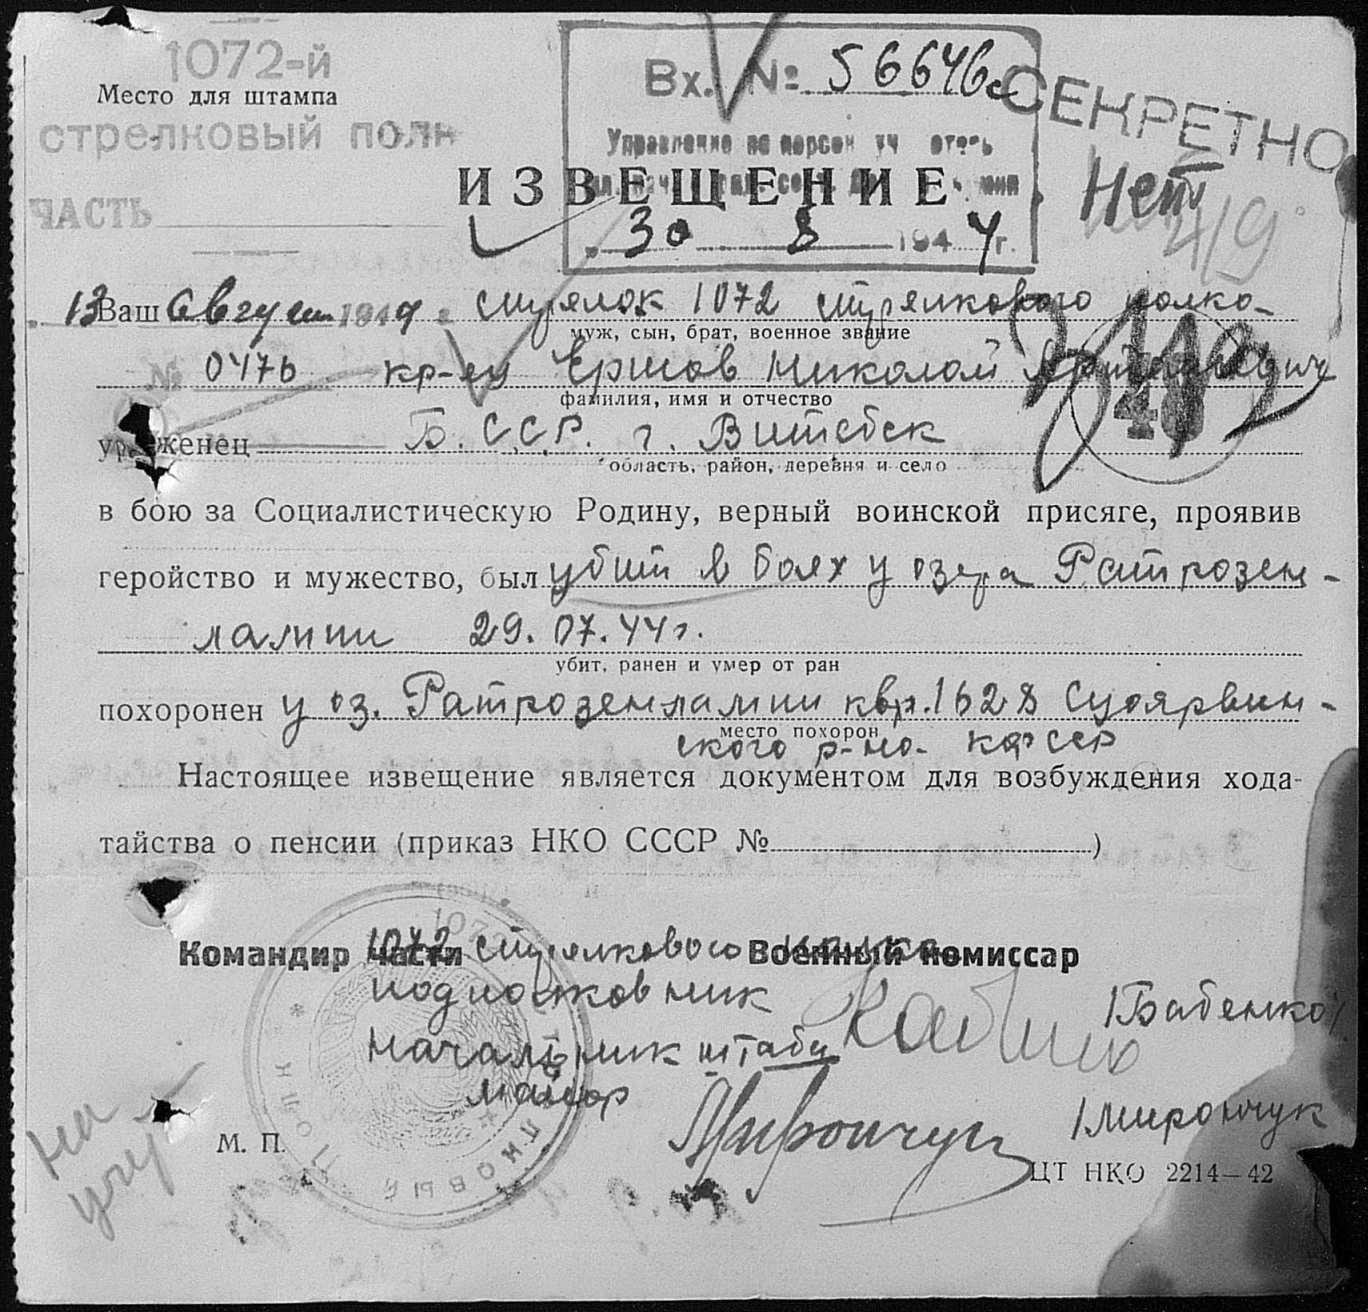 1072-й
Место для штампа
стрелковый полк
ЧАСТЬ
Вх. № 56646с
СЕКРЕТНО
Управление по персон
Нет
4/9
ИЗВЕЩЕНИЕ
30 8 1944г.
13 Ваш Август 1944г. стрялок 1072 стрялкового полка
муж, сын, брат, военное звание
№ 0476 кр-ец Ершов Николай
фамилия, имя и отчество
уроженец Б. С.С.Р. г. Витебск
область, район, деревня и село
в бою за Социалистическую Родину, верный воинской присяге, проявив
геройство и мужество, был убит в боях у озера Ратрозен-
лампи 29.07.44г.
убит, ранен и умер от ран
похоронен у оз. Ратрозенлампи квр. 1628 Суоярвин-
место похорон
ского р-на- КФССР
Настоящее извещение является документом для возбуждения хода-
тайства о пенсии (приказ НКО СССР № )
Командир части 1072 стрялкового полка Военный комиссар
подполковник /Бабенко/
Начальник штаба
майор /Мирончук
М. П.
На учет
ЦТ НКО 2214—42